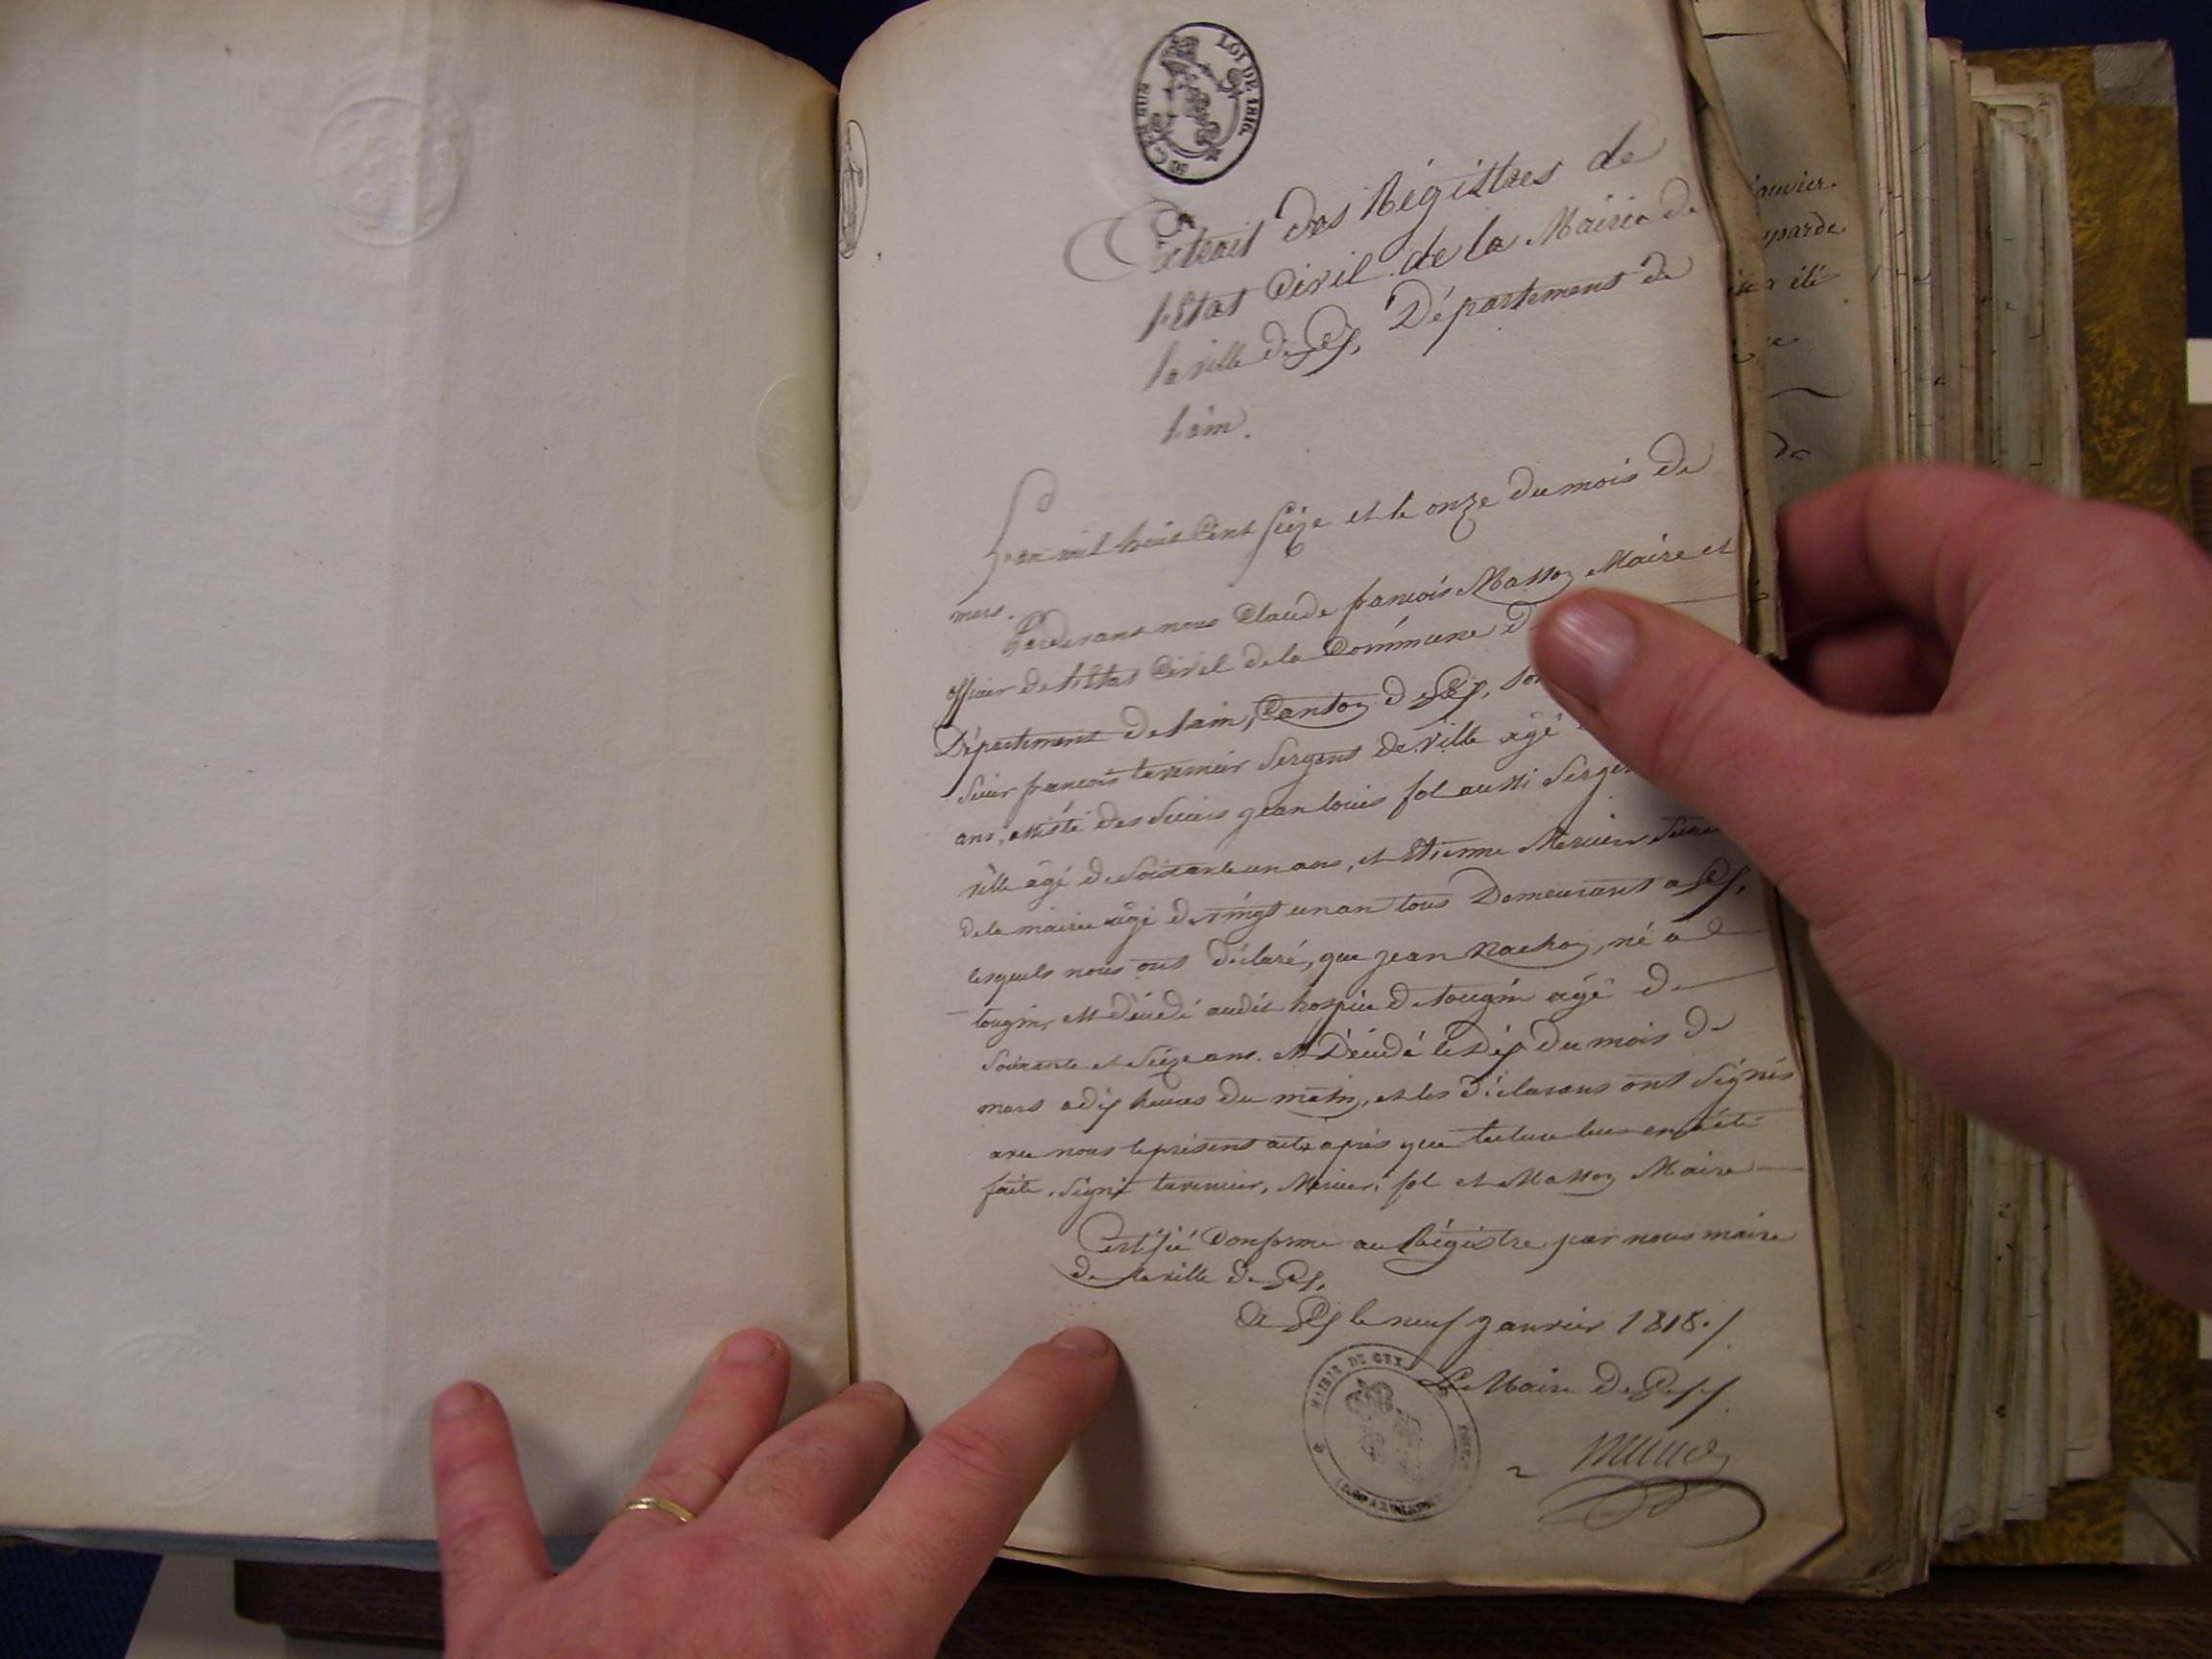 LOI DE 1816.
50 C.EN SUS
Extrait des Régistres de
l'Etat Civil de la Mairie de
la ville de Gex, Département de
l'ain.
L'an mil huit Cent seize et le onze du mois de
mars.
Pardevant nous Claude françois Masson Maire et
officier de l'Etat Civil de la Commune d
Département de l'ain, Canton de Gex, son
Sieur françois tavernier Sergent de ville agé
ans, assisté des Sieurs jean louis fol aussi Serge
ville agé de Soixante un ans, et Etienne Mercier
de la mairie agé de vingt un an tous Demeurant a Gex,
lesquels nous ont déclaré, que jean Nachon, né a
tougin, est décédé audit hospice de tougin agé de
Soixante et Seize ans. est Décédé le Dix du mois de
mars a dix heures du matin, et les déclarans ont Signés
avec nous le présent acte après que lecture leur en a été
faite. Signé tavernier, Mercier, fol et Masson Maire
Certifié Conforme au Régistre par nous maire
de la ville de Gex,
a Gex le neuf janvier 1818./.
Le Maire de Gex
MAIRIE DE GEX
janvier.
yparde
été
de